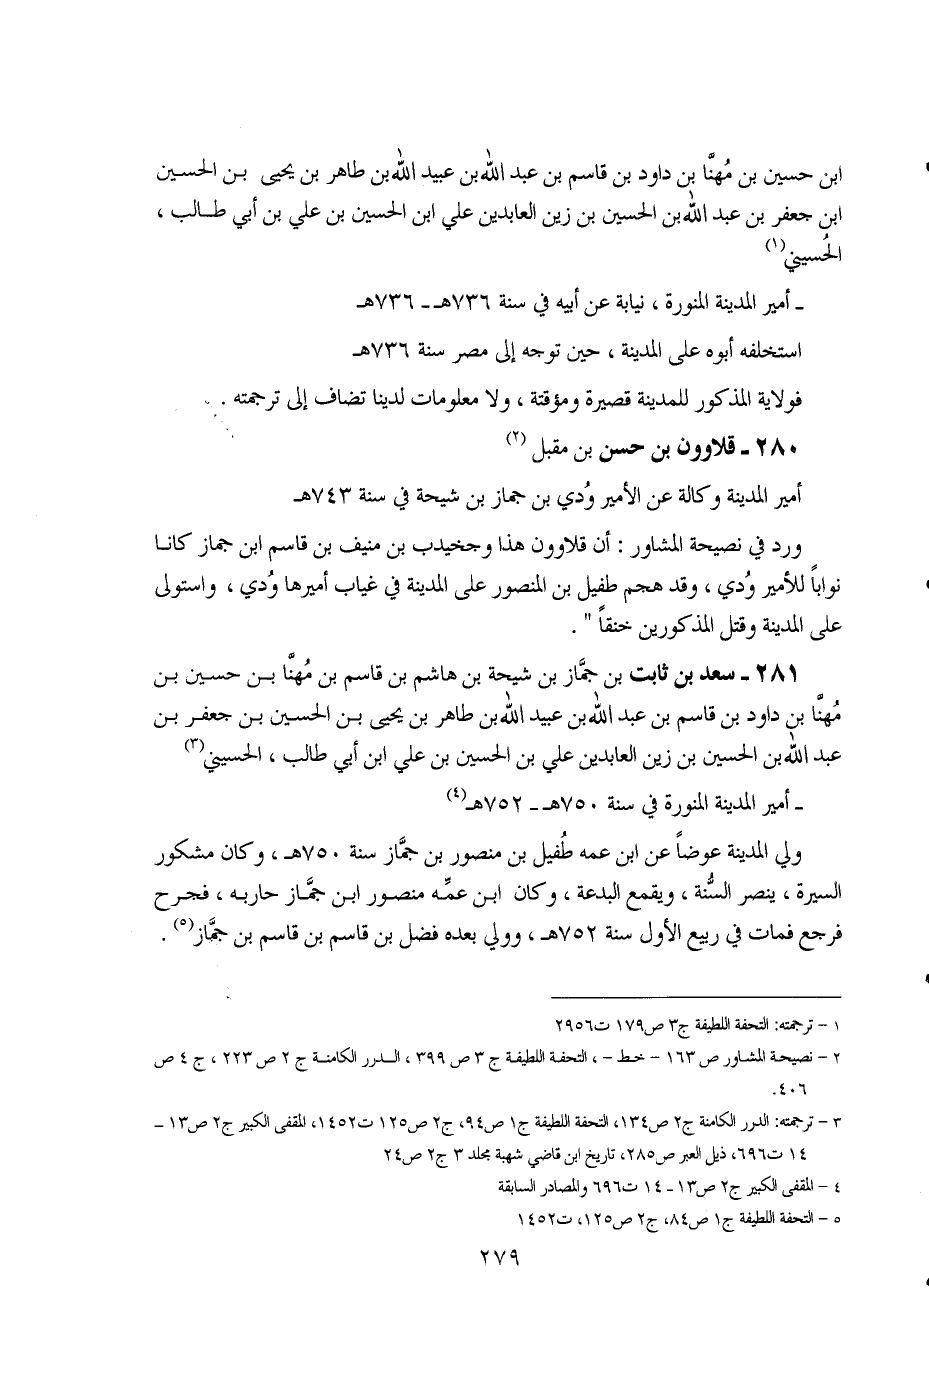 ابن حسين بن مُهنَّا بن داود بن قاسم بن عبد الله بن عبيد الله بن طاهر بن يحيى بـن الحسـين
ابن جعفر بن عبد الله بن الحسين بن زين العابدين علي ابن الحسين بن علي بن أبي طـالب ،
الحُسيني(١)
ـ أمير المدينة المنورة ، نيابة عن أبيه في سنة ٧٣٦هـ ـ ٧٣٦هـ
استخلفه أبوه على المدينة ، حين توجه إلى مصر سنة ٧٣٦هـ
فولاية المذكور للمدينة قصيرة ومؤقتة ، ولا معلومات لدينا تضاف إلى ترجمته .
٢٨٠ ـ قلاوون بن حسن بن مقبل (٢)
أمير المدينة وكالة عن الأمير وُدي بن جماز بن شيحة في سنة ٧٤٣هـ
ورد في نصيحة المشاور : أن قلاوون هذا وجخيدب بن منيف بن قاسم ابن جماز كانـا
نواباً للأمير وُدي ، وقد هجم طفيل بن المنصور على المدينة في غياب أميرها وُدي ، واستولى
على المدينة وقتل المذكورين خنقاً " .
٢٨١ ـ سعد بن ثابت بن جمَّاز بن شيحة بن هاشم بن قاسم بن مُهنَّا بـن حسـين بـن
مُهنَّا بن داود بن قاسم بن عبد الله بن عبيد الله بن طاهر بن يحيى بـن الحسـين بـن جعفـر بـن
عبد الله بن الحسين بن زين العابدين علي بن الحسين بن علي ابن أبي طالب ، الحسيني(٣)
ـ أمير المدينة المنورة في سنة ٧٥٠هـ ـ ٧٥٢هـ(٤)
ولي المدينة عوضاً عن ابن عمه طُفيل بن منصور بن جمَّاز سنة ٧٥٠هـ ، وكان مشكور
السيرة ، ينصر السُّنة ، ويقمع البدعة ، وكان ابـن عمِّـه منصـور ابـن جمَّـاز حاربـه ، فجـرح
فرجع فمات في ربيع الأول سنة ٧٥٢هـ ، وولي بعده فضل بن قاسم بن قاسم بن جمَّاز(٥) .
١ – ترجمته: التحفة اللطيفة ج٣ ص١٧٩ ت٢٩٥٦
٢ – نصيحة المشاور ص ١٦٣ – خـط – ، التحفة اللطيفة ج ٣ ص ٣٩٩ ، الـدرر الكامنـة ج ٢ ص ٢٢٣ ، ج ٤ ص
٤٠٦.
٣ – ترجمته: الدرر الكامنة ج٢ ص١٣٤، التحفة اللطيفة ج١ ص٩٤، ج٢ ص١٢٥ ت١٤٥٢، المقفى الكبير ج٢ ص١٣ ـ
١٤ ت٦٩٦، ذيل العبر ص٢٨٥، تاريخ ابن قاضي شهبة مجلد ٣ ج٢ ص٢٤
٤ – المقفى الكبير ج٢ ص١٣ ـ ١٤ ت٦٩٦ والمصادر السابقة
٥ – التحفة اللطيفة ج١ ص٨٤، ج٢ ص١٢٥، ت١٤٥٢
٢٧٩